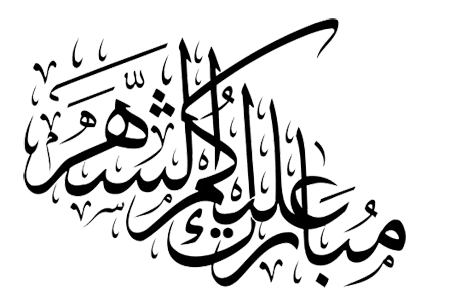 مُبارك عليكم الشّهر